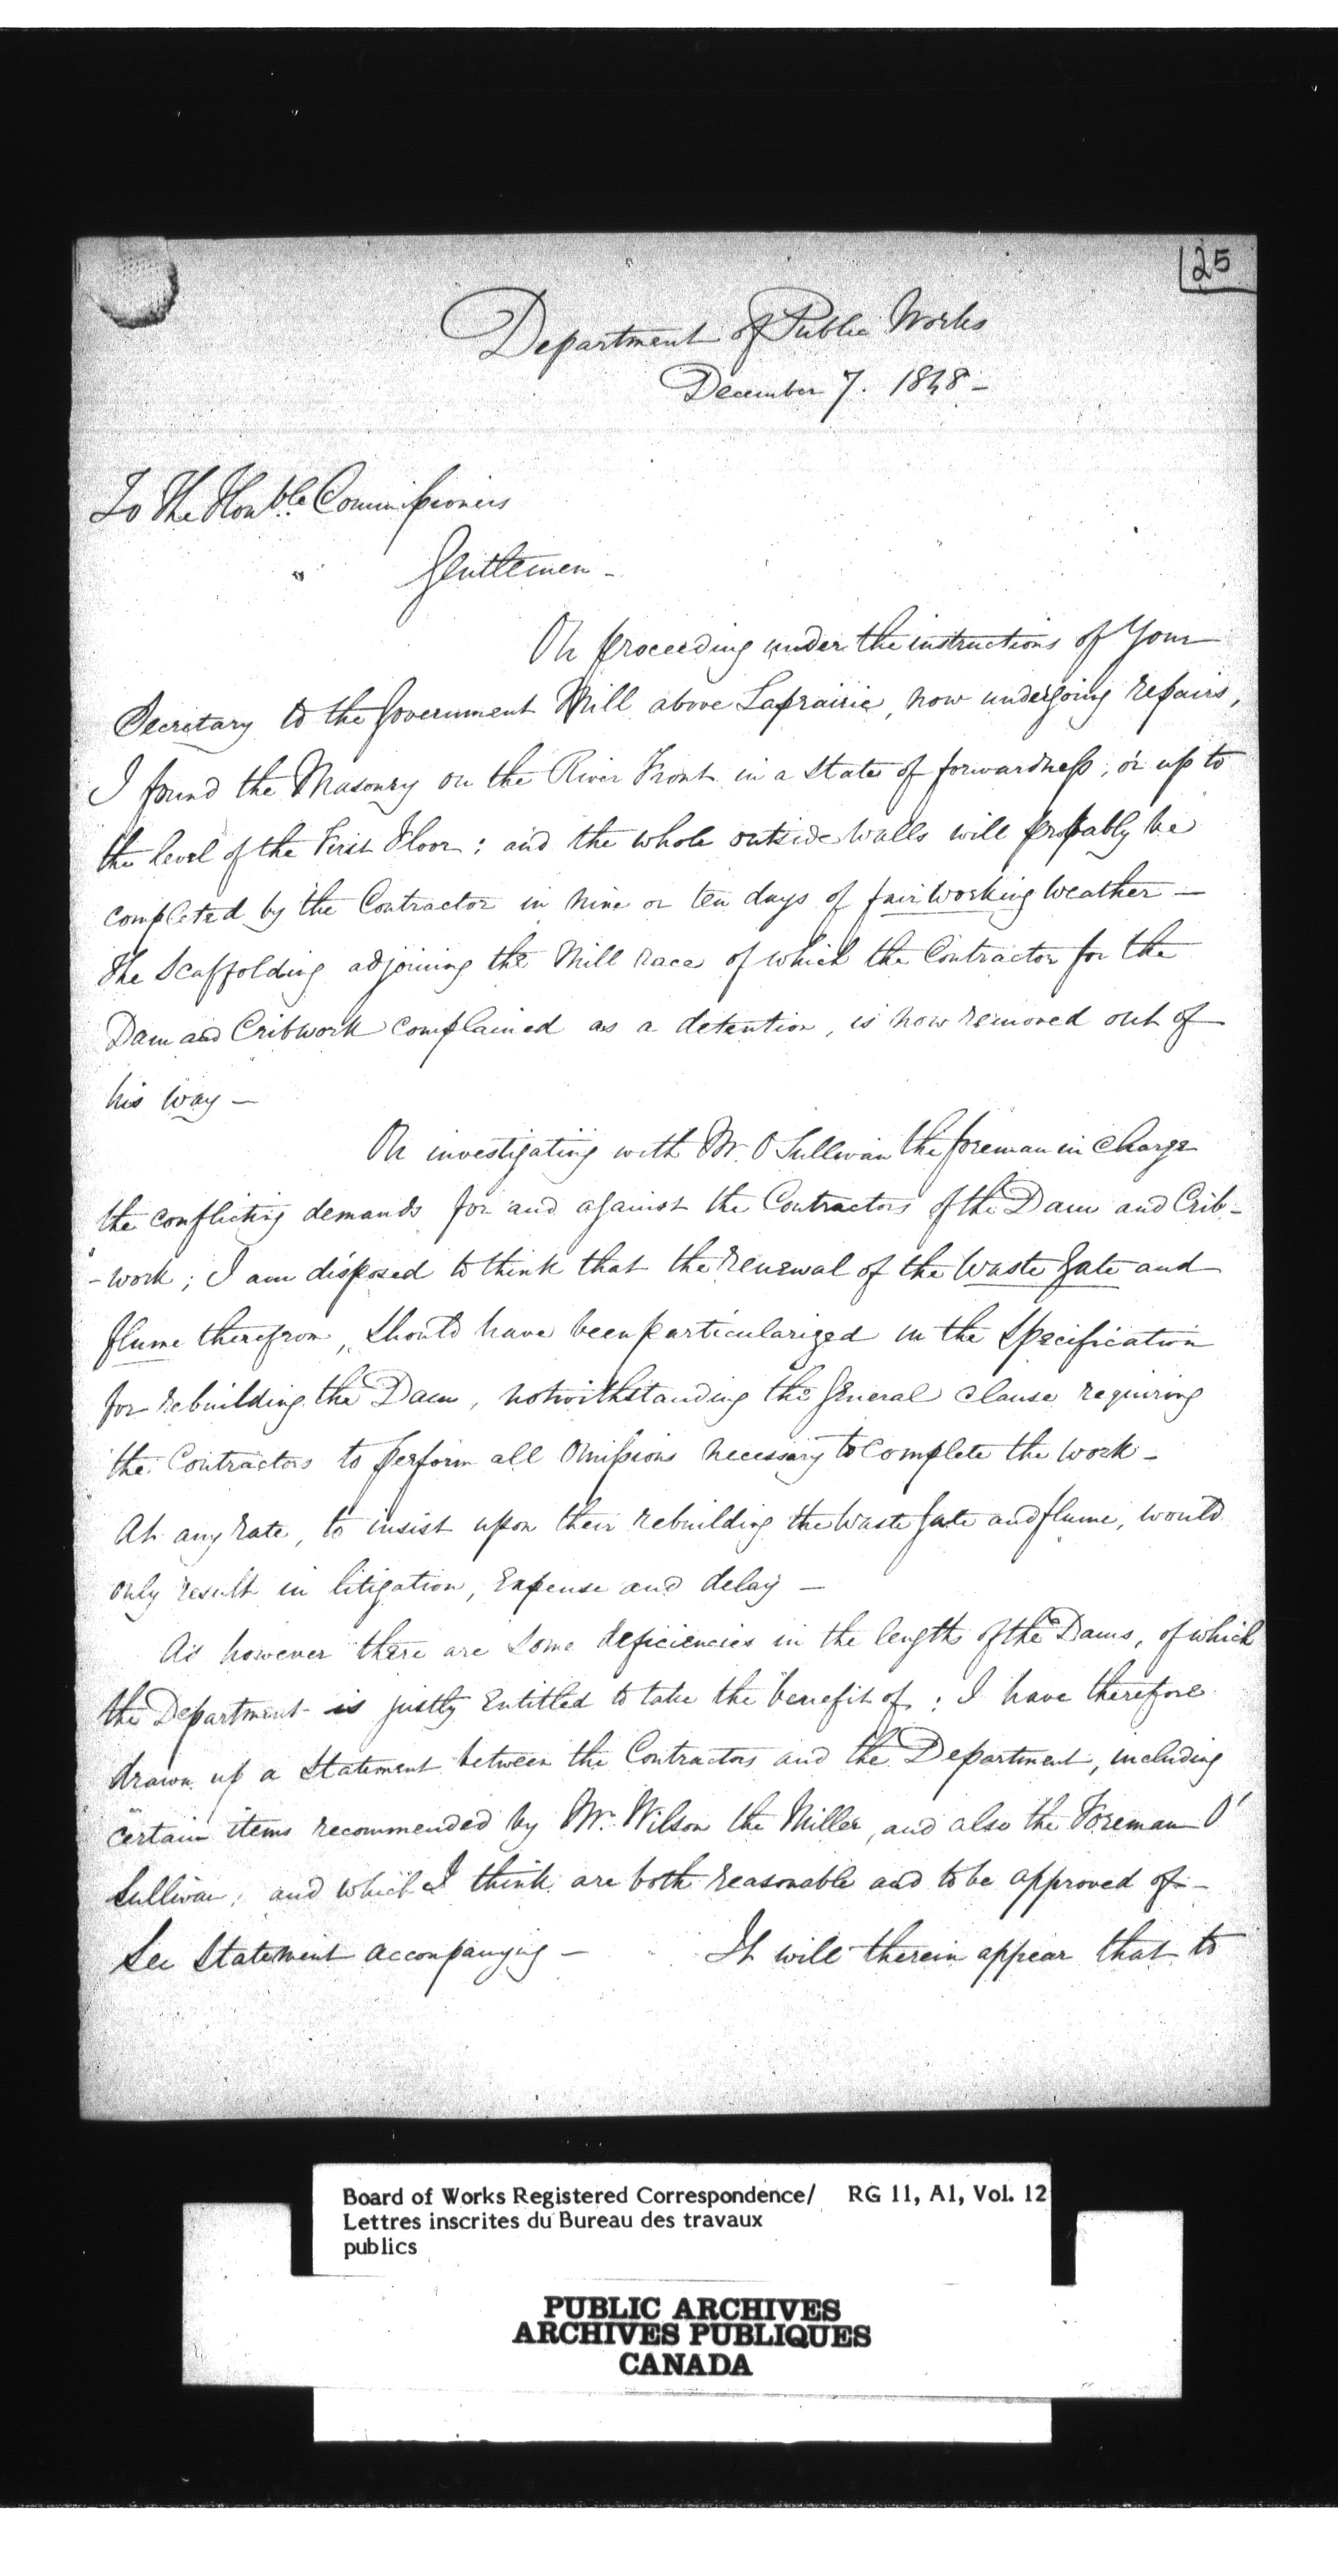 25
Department of Public Works
December 7. 1848 -
To The Honble. Commissioners
Gentlemen -
On proceeding under the instructions of Your
Secretary to the Government Mill above Laprairie, now undergoing repairs,
I found the Masonry on the River Front in a State of forwardness, or up to
the level of the First Floor: and the whole outside walls will probably be
completed by the Contractor in nine or ten days of fair working Weather —
The Scaffolding adjoining the Mill race of which the Contractor for the
Dam and Cribwork complained as a detention, is now removed out of
his way —
On investigating with Mr. O Sullivan the foreman in Charge
the conflicting demands for and against the Contractors of the Dam and Crib-
-work; I am disposed to think that the renewal of the Waste Gate and
flume therefrom, should have been particularized in the Specification
for rebuilding the Dam, notwithstanding the General Clause requiring
the Contractors to perform all Omissions necessary to complete the work -
At any rate, to insist upon their rebuilding the Waste Gate and flume, would
only result in litigation, Expense and delay —
As however there are some deficiencies in the length of the Dams, of which
the Department is justly Entitled to take the benefit of; I have therefore
drawn up a Statement between the Contractors and the Department, including
certain items recommended by Mr. Wilson the Miller, and also the Foreman O'
Sullivan; and which I think are both reasonable and to be approved of -
See Statement accompanying — It will therein appear that to
Board of Works Registered Correspondence/ RG 11, A1, Vol. 12
Lettres inscrites du Bureau des travaux
publics
PUBLIC ARCHIVES
ARCHIVES PUBLIQUES
CANADA